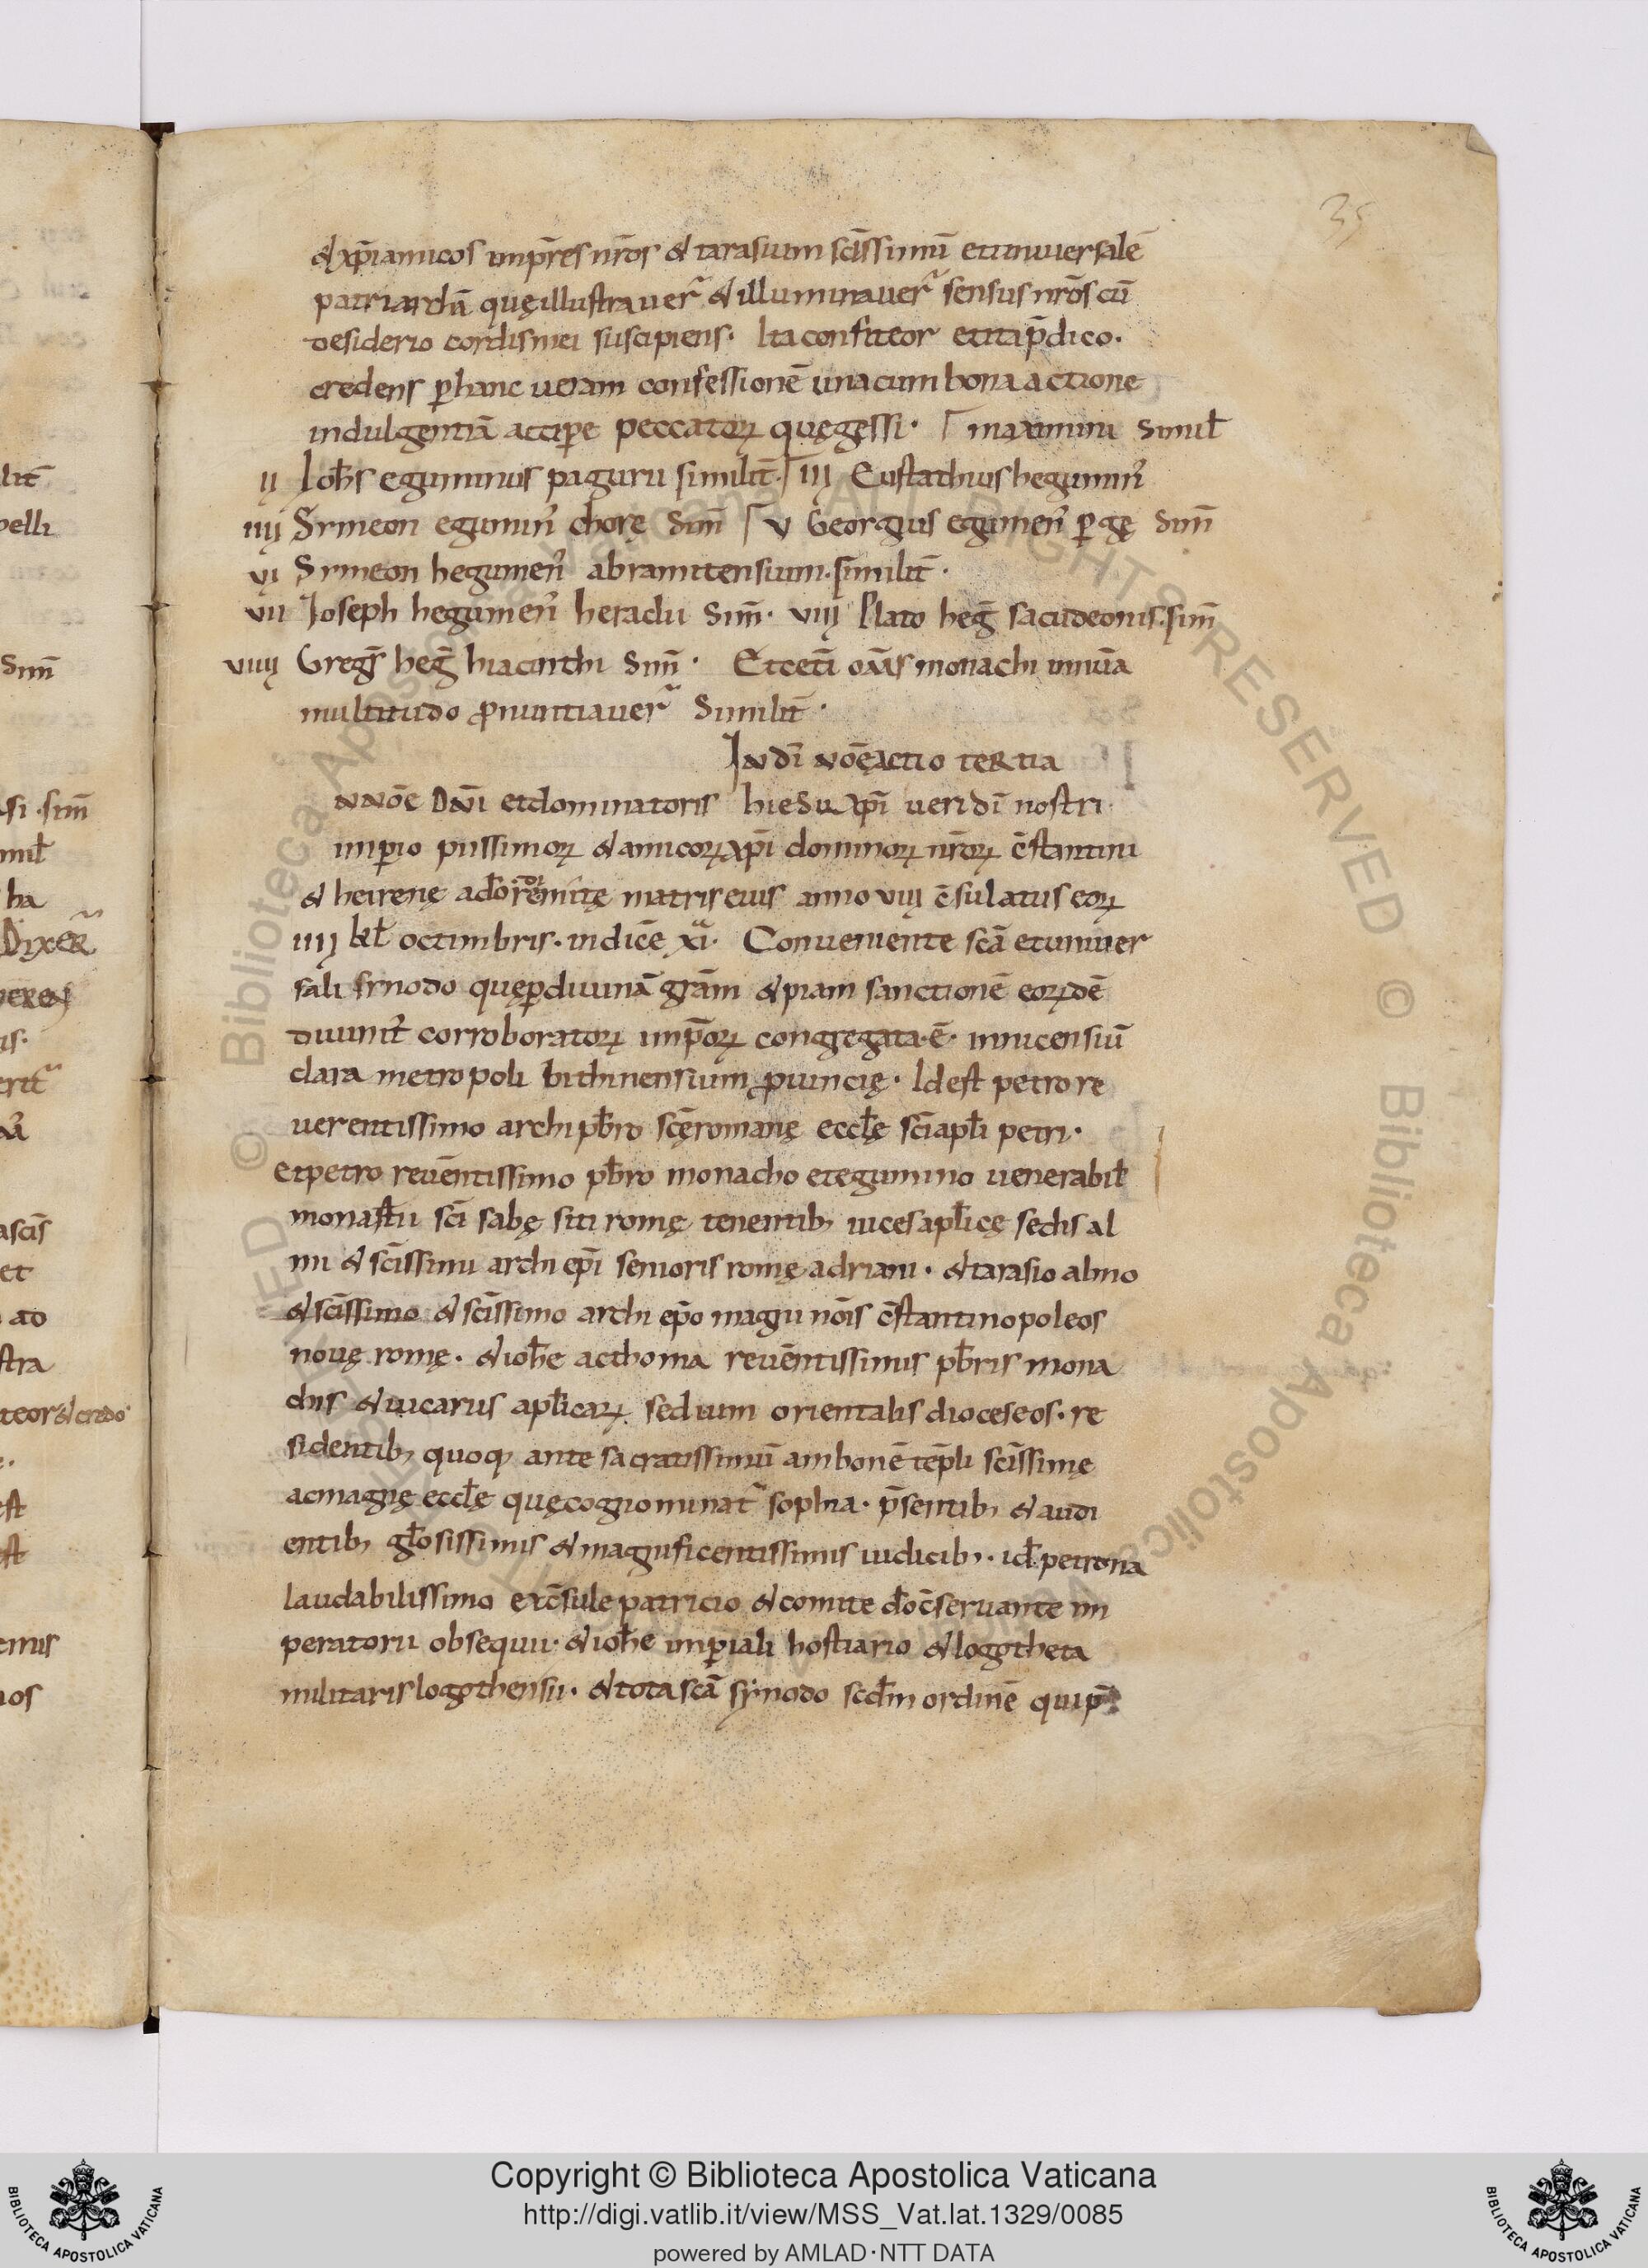 35
& xp̄iamicos imp̄res nr̄os & tarasium sc̄issimū et uniuersalē
patriarchā quę illustrauer̃ & illuminauer̃ sensus nr̄os cū
desiderio cordis mei suscipiens. Ita confiteor et ita p̄dico.
credens ꝑ hanc ueram confessionē una cum bona actione
indulgentiā acciꝑe peccatoꝝ quę gessi. maximini simił
ii Ioħs eguminus paguru similit̄. iii Eustathius hegumin᾿
iiii Symeon egumin᾿ chorę sim̄ v Georgius egumen᾿ ꝑgę sim̄
vi Symeon hegumen᾿ abramitensium. similit̄.
vii Ioseph hegumen᾿ heraclii sim̄. viii Plato heḡ sacudeonis. sim̄
viiii Greḡ heḡ hiacinthi sim̄. Et cet̄i om̄s monachi inuīa
multitudo ꝓnuntiauer̃ Similit̄.
In dī nōe actio tertia
nnōe Dn̄i et dominatoris hiesu xp̄i ueri dī nostri.
imꝑio piissimoꝝ & amicoꝝ xp̄i dominoꝝ nr̄oꝝ c̄stantini
& heirenę matris eius anno viii c̄sulatus eoꝝ
iiii kł octimbris. indic̄e xi. Conueniente sc̄a et uniuer
sali synodo quę ꝑ diuinā gr̄am & piam sanctionē eoꝝdē
diuinit᾿ corroboratoꝝ imp̄oꝝ congregata. ē. in nicensiū
clara metropoli bithinensium ꝓuincię. Id est petro re
uerentissimo archi pƀro sc̄ę romanę eccłę sc̄i apłi petri.
Et petro reuēntissimo pƀro monacho et egumino uenerabił
monastłii sc̄i sabę siti romę tenentib; uices apłicę sedis al
mi & sc̄issimi archi ep̄i senioris romę adriani. & tarasio almo
& sc̄issimo & sc̄issimo archi ep̄o magni nōis c̄stantinopoleos
nouę romę. & ioħe ac thoma reuēntissimis pƀris mona
chis & uicariis apłicaꝝ sedium orientalis dioceseos. re
sidentib; quoq; ante sacratissimū ambonē tēpli sc̄issimę
ac magnę eccłę quę cognominat᾿ sophia. p̄sentib; & audi
entib; gło̅sissimis & magnificentissimis iudicib;. id petrona
laudabilissimo exc̄sule patricio & comite do̅ c̄seruante im
peratorii obsequii. & ioħe imꝑiali hostiario & logotheta
militaris logothensii. & tota sc̄a synodo scdm̄ ordinē qui p̄
Copyright © Biblioteca Apostolica Vaticana
http://digi.vatlib.it/view/MSS_Vat.lat.1329/0085
powered by AMLAD·NTT DATA